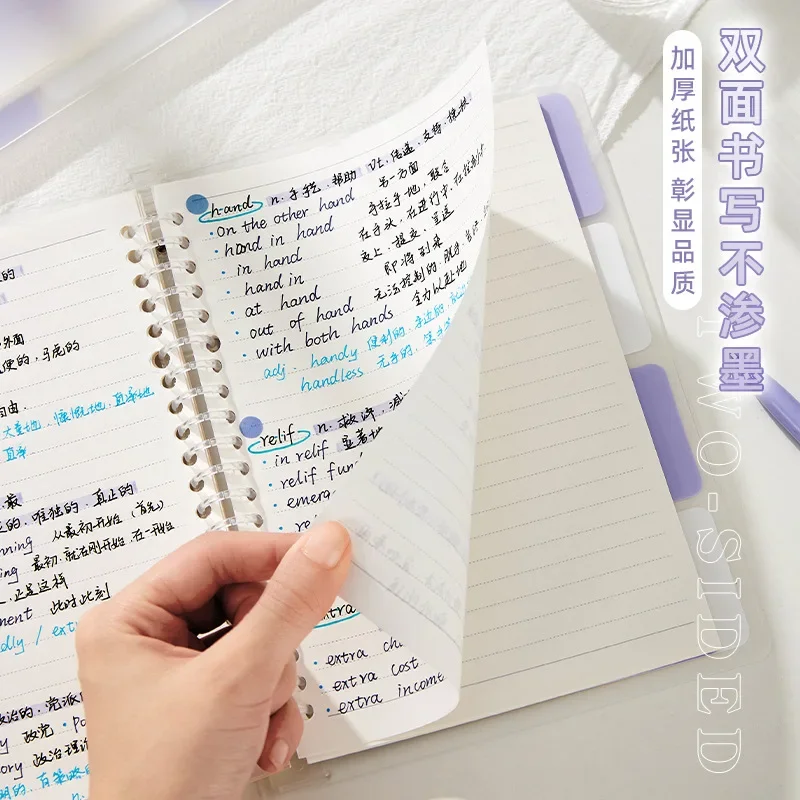 双面书写不渗墨
加厚纸张 彰显品质
TWO-SIDED
hand n. 手掌, 帮助 Vt. 传递, 支持, 搀扶
· on the other hand 另一方面
· hand in hand 手拉手地, 联合
· in hand 在手头, 在进行中, 在控制中
· hand in 交上, 提交, 呈送
· at hand 即将到来
· out of hand 无法控制的, 脱手
· with both hands 全力以赴地
adj. handy 便利的, 手边的
handless 无手的
relif n. 救济
· in relif 显著地
· relif fun
· emerg
extra
· extra ch
· extra cost
· extra income
的
外面
便的, 马虎的
自由
大意地, 慷慨地, 直率地
直率
最
的, 唯独的, 真正的
nning 从最初开始 (首先)
ng 最初, 就在刚开始, 在一开始
, 正是这样
ment 此时此刻
dly / extr
政治的, 党派
y 政党 · po
ory 政治理论
明的, 有策略的
n.